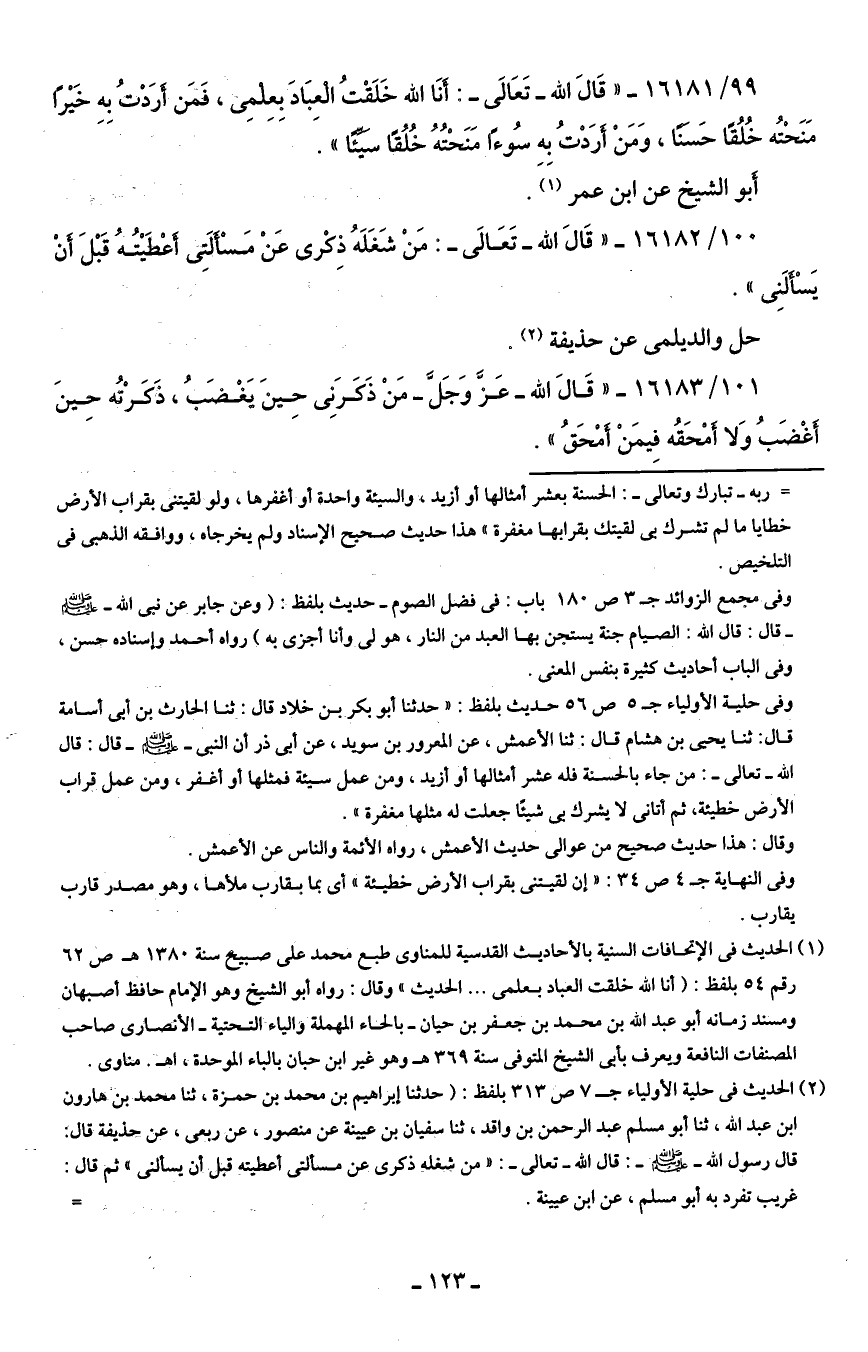 ٩٩/ ١٦١٨١ ـ « قَالَ الله ـ تَعَالَى ـ : أَنَا الله خَلَقْتُ الْعِبَادَ بِعِلْمِى ، فَمَن أَرَدْتُ بِهِ خَيْرًا
مَنَحْتُه خُلُقًا حَسَنًا ، وَمَنْ أَرَدْتُ بِهِ سُوءًا مَنَحْتُهُ خُلُقًا سَيِّئًا » .
أبو الشيخ عن ابن عمر (١) .
١٠٠/ ١٦١٨٢ ـ « قَالَ الله ـ تَعَالَى ـ : مَنْ شَغَلَهُ ذِكْرِى عَنْ مَسْأَلَتِى أَعْطَيْتُهُ قَبْلَ أَنْ
يَسْأَلَنِى » .
حل والديلمى عن حذيفة (٢) .
١٠١/ ١٦١٨٣ ـ « قَالَ الله ـ عَزَّ وَجَلَّ ـ مَنْ ذَكَرَنِى حِينَ يَغْضَبُ ، ذَكَرْتُه حِينَ
أَغْضَبُ وَلَا أَمْحَقُه فِيمَنْ أَمْحَقُ » .
= ربه ـ تبارك وتعالى ـ : الحسنة بعشر أمثالها أو أزيد ، والسيئة واحدة أو أغفرها ، ولو لقيتنى بقراب الأرض
خطايا ما لم تشرك بى لقيتك بقرابها مغفرة » هذا حديث صحيح الإسناد ولم يخرجاه ، ووافقه الذهبى فى
التلخيص .
وفى مجمع الزوائد جـ ٣ ص ١٨٠ باب : فى فضل الصوم ـ حديث بلفظ : ( وعن جابر عن نبى الله ـ ﷺ
ـ قال : قال الله : الصيام جنة يستجن بها العبد من النار ، هو لى وأنا أجزى به ) رواه أحمد وإسناده حسن ،
وفى الباب أحاديث كثيرة بنفس المعنى .
وفى حلية الأولياء جـ ٥ ص ٥٦ حديث بلفظ : « حدثنا أبو بكر بن خلاد قال : ثنا الحارث بن أبى أسامة
قال: ثنا يحيى بن هشام قال : ثنا الأعمش ، عن المعرور بن سويد ، عن أبى ذر أن النبى ـ ﷺ ـ قال : قال
الله ـ تعالى ـ : من جاء بالحسنة فله عشر أمثالها أو أزيد ، ومن عمل سيئة فمثلها أو أغفر ، ومن عمل قراب
الأرض خطيئة، ثم أتانى لا يشرك بى شيئًا جعلت له مثلها مغفرة » .
وقال : هذا حديث صحيح من عوالى حديث الأعمش ، رواه الأئمة والناس عن الأعمش .
وفى النهاية جـ ٤ ص ٣٤ : « إن لقيتنى بقراب الأرض خطيئة » أى بما يقارب ملأها ، وهو مصدر قارب
يقارب .
(١) الحديث فى الإتحافات السنية بالأحاديث القدسية للمناوى طبع محمد على صبيح سنة ١٣٨٠ هـ ص ٦٢
رقم ٥٤ بلفظ : ( أنا الله خلقت العباد بعلمى ... الحديث » وقال : رواه أبو الشيخ وهو الإمام حافظ أصبهان
ومسند زمانه أبو عبد الله بن محمد بن جعفر بن حيان ـ بالحاء المهملة والياء التحتية ـ الأنصارى صاحب
المصنفات النافعة ويعرف بأبى الشيخ المتوفى سنة ٣٦٩ هـ وهو غير ابن حبان بالباء الموحدة ، اهـ . مناوى .
(٢) الحديث فى حلية الأولياء جـ ٧ ص ٣١٣ بلفظ : ( حدثنا إبراهيم بن محمد بن حمزة ، ثنا محمد بن هارون
ابن عبد الله ، ثنا أبو مسلم عبد الرحمن بن واقد ، ثنا سفيان بن عيينة عن منصور ، عن ربعى ، عن حذيفة قال:
قال رسول الله ـ ﷺ ـ : قال الله ـ تعالى ـ : « من شغله ذكرى عن مسألتى أعطيته قبل أن يسألنى » ثم قال :
غريب تفرد به أبو مسلم ، عن ابن عيينة . =
ـ ١٢٣ ـ